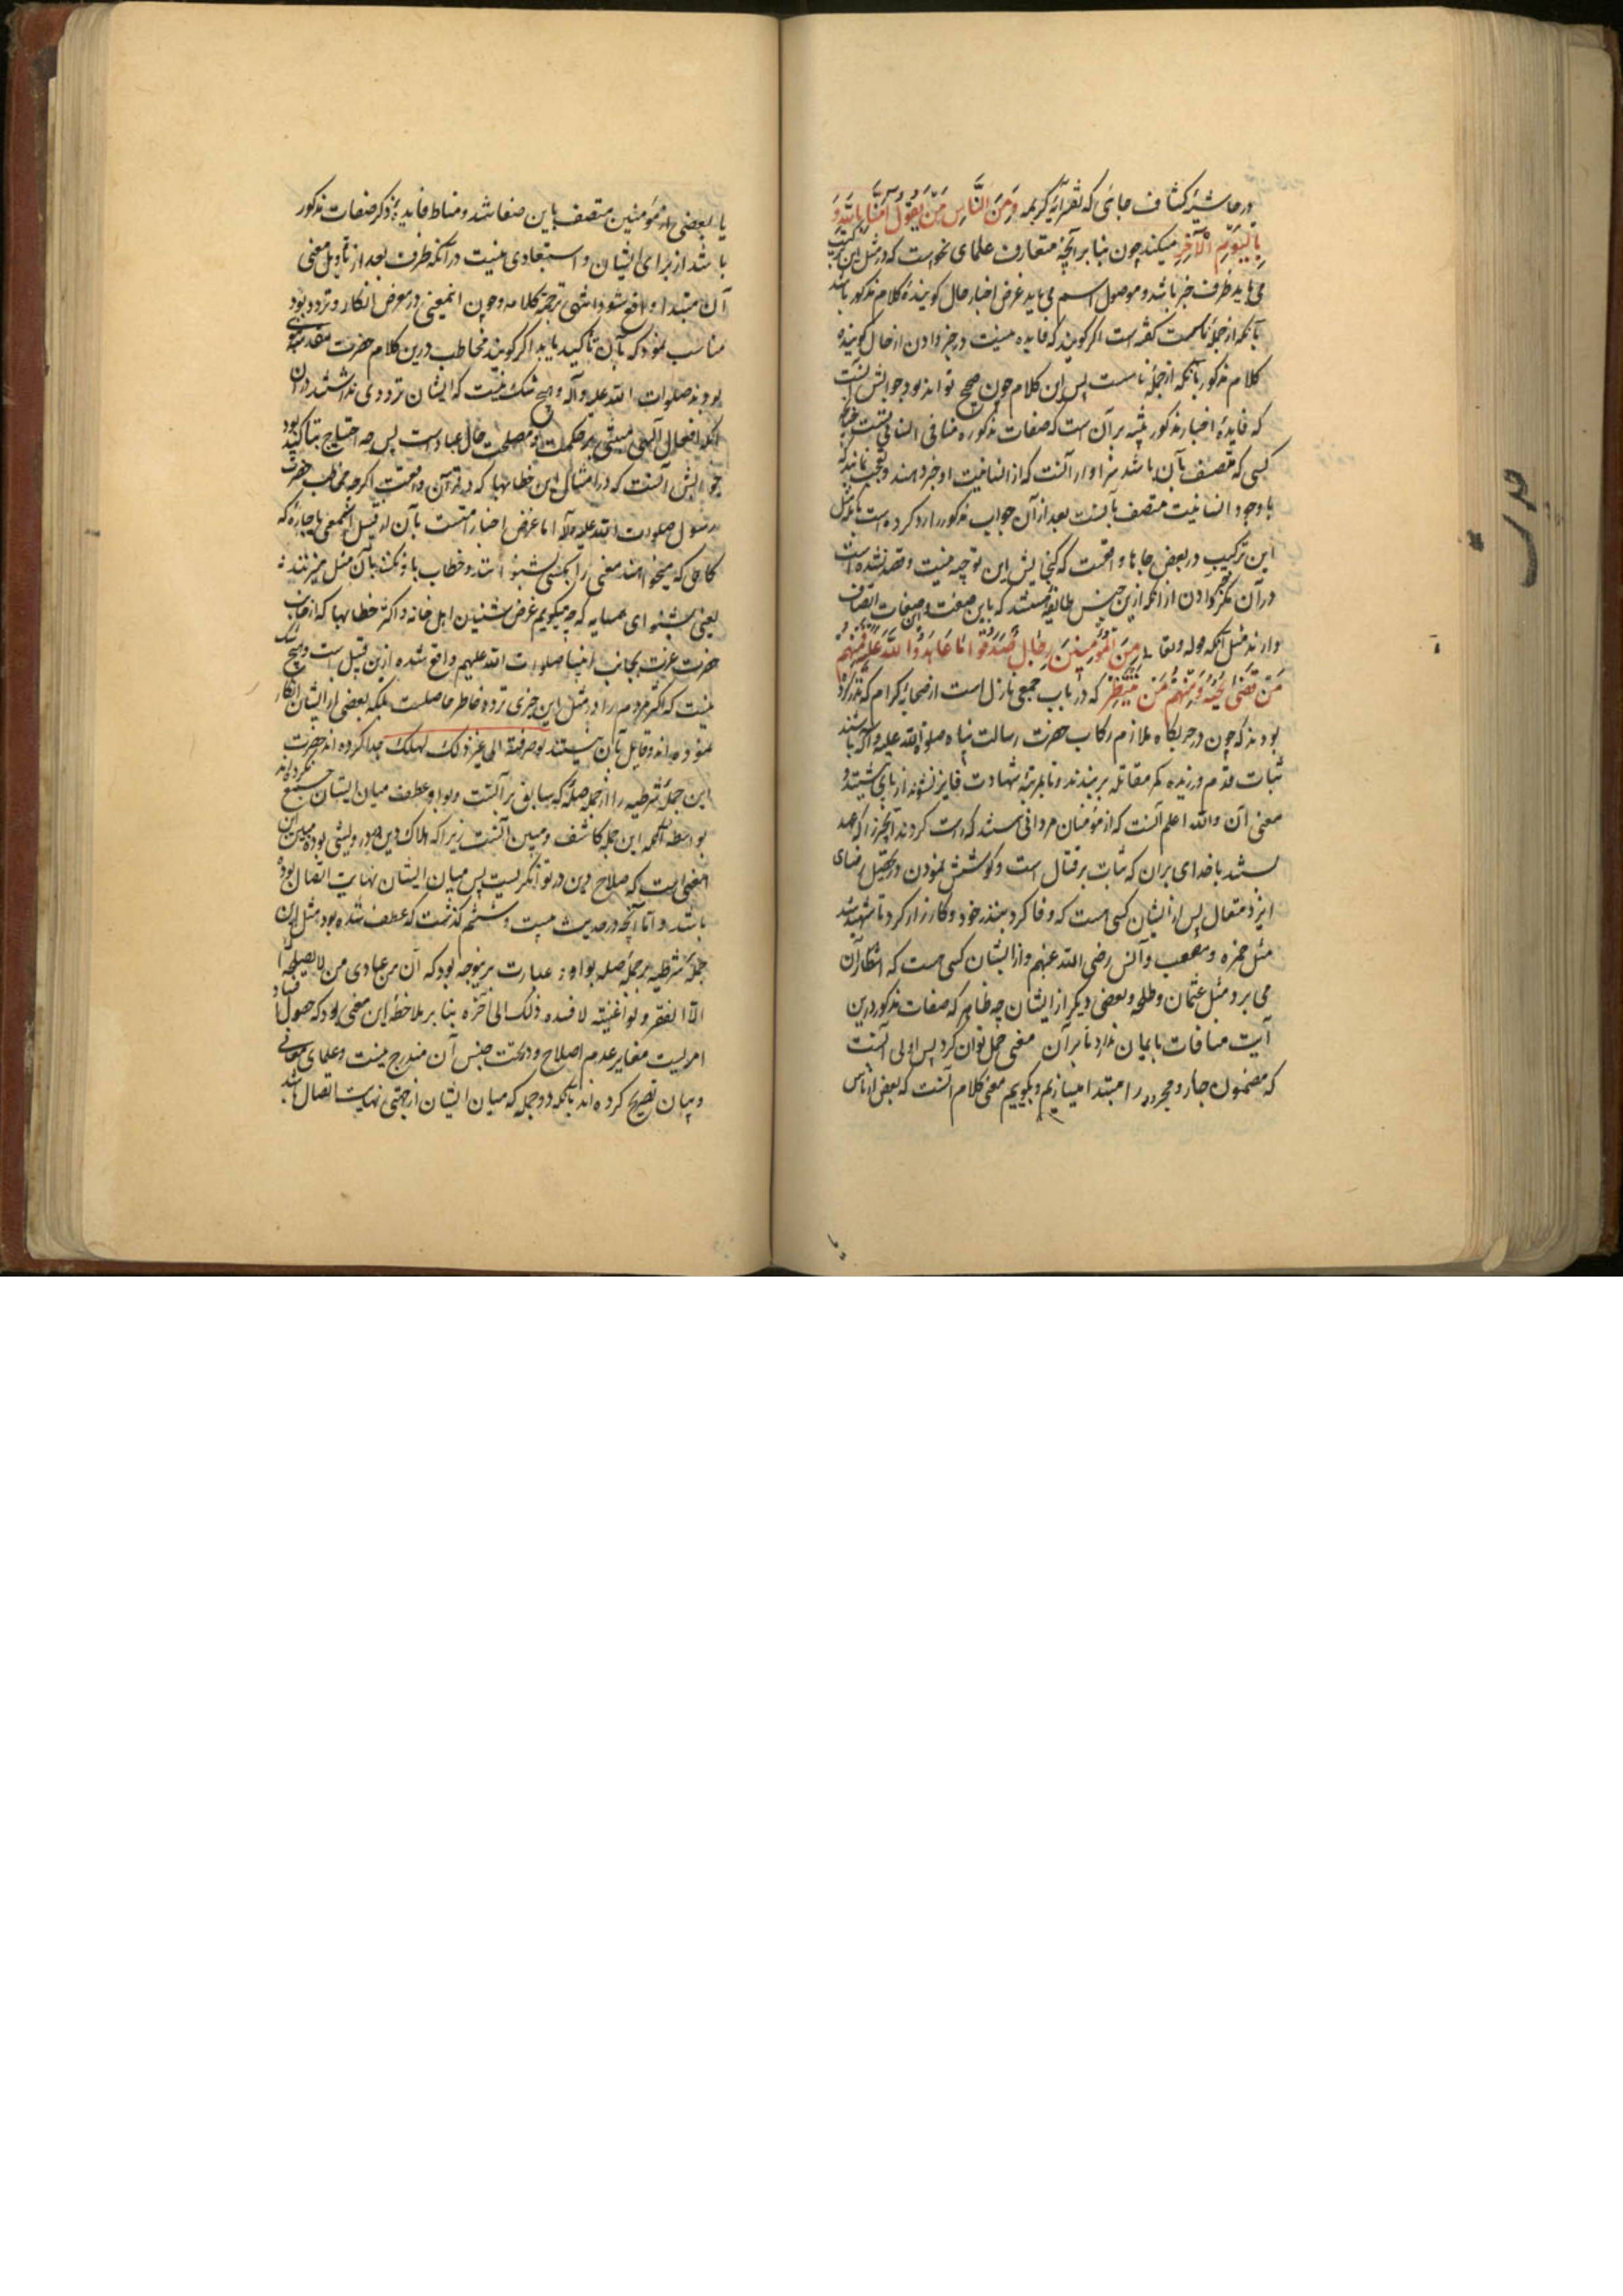 در حاشیهٔ کشاف جائی که تفسیر آیهٔ کریمه وَمِنَ النَّاسِ مَنْ یَقُولُ آمَنَّا بِاللَّهِ وَ
بِالْیَوْمِ الْآخِرِ میکند چون بنا بر آنچه متعارف علمای نحوست که در مثل این ترکیب
می باید ظرف خبر باشد و موصول اسم می باید غرض اخبار حال کویندهٔ کلام مذکور باشد
بآنکه از جملهٔ ناسست کفته است اکر کویند که فایده نیست در خبر دادن از حال کوینده
کلام مذکور بآنکه از جملهٔ ناسست پس این کلام چون صحیح تواند بود جوابش آنست
که فایدهٔ اخبار مذکور تنبیه بر آن است که صفات مذکوره منافی انسانیتست
کسی که متصف بآن باشد سزاوار آنست که از انسانیت او خبر دهند و تعجب نمایند که
با وجود انسانیت متصف بآنست بعد از آن جواب مذکور را رد کرده است بآنکه مثل
این ترکیب در بعض جاها واقعست که کنجایش این توجیه نیست و قصد نشده است
در آن مکر خبر دادن از آنکه ازین جنس طایفهٔ هستند که باین صفت و صفات اتصاف
دارند مثل آنکه قوله تعالی مِنَ الْمُؤْمِنِینَ رِجَالٌ صَدَقُوا مَا عَاهَدُوا اللَّهَ عَلَیْهِ فَمِنْهُمْ
مَنْ قَضَی نَحْبَهُ وَمِنْهُمْ مَنْ یَنْتَظِرُ که در باب جمعی نازل است از صحابهٔ کرام که نذر کرده
بودند که چون در حربکاه ملازم رکاب حضرت رسالت پناه صلوة الله علیه و آله باشند
ثبات قدم ورزیده کمر مقاتله بر بندند و تا بمرتبهٔ شهادت فایز نشوند از پای ننشینند و
معنی آن والله اعلم آنست که از مؤمنان مردانی هستند که راست کردند آنچیز را که عهد
بستند با خدای بران که ثبات بر قتال است و کوشش نمودن در تحصیل رضای
ایزد متعال پس از ایشان کسی هست که وفا کرد بنذر خود و کارزار کرد تا شهید شد
مثل حمزه و مصعب و انس رضی الله عنهم و از ایشان کسی هست که انتظار آن
می برد مثل عثمان و طلحه و بعضی دیکر از ایشان چه ظاهر که صفات مذکور درین
آیت منافات بایمان ندارد تا بر آن معنی حمل توان کرد پس اولی آنست
که مضمون جار و مجرور را مبتدا میسازیم و بکوییم معنی کلام آنست که بعض از ناس
یا بعضی از مؤمنین متصف باین صفا شد و مناط فایده ذکر صفات مذکور
باشد از برای ایشان و استبعادی نیست در آنکه ظرف بعد از تأویل معنی
آن مبتدا واقع شود انتهی ترجمة کلامه و چون اینمعنی در معرض انکار و تردد بود
مناسب نمود که بآن تأکید یابد اکر کویند مخاطب درین کلام حضرت مقدس نبوی
بودند صلوات الله علیه و آله و هیچ شک نیست که ایشان ترددی نداشتند در آن
آنکه افعال آلهی مبتنی بر حکمت و مصلحت حال عباد است پس چه احتیاج بتأکید بود
جوابش آنست که در امثال این خطابها که در قرآن واقعست اکرچه مخاطب حضرت
رسول صلوات الله علیه و آله اما غرض اخبار امتست بآن از قبیل
کاهی که میخواهند معنی را بکسی شنوانند و خطاب با او نکنند بآن مثل میزنند
یعنی بشنو ای همسایه که چه میکویم غرض شنیدن اهل خانه و اکثر خطابها که از جانب
حضرت عزت بجانب انبیا صلوات الله علیهم واقع شده ازین قبیل است و هیچ شک
نیست که اکثر مردم را در مثل این چیزی تردد خاطر حاصلست بلکه بعضی از ایشان انکار
نموده اند و قایل بآن نیستند و صرفته الی غیر ذلک لهلک جدا کرده اند حضرت
این جملهٔ شرطیه را از جملهٔ صله که سابق بر آنست و بواو عطف میان ایشان جمع نکرده اند
بواسطه آنکه این جمله کاشف و مبین آنست زیرا که هلاک دین در درویشی بوده مبین این
معنی است که صلاح دین در توانکریست پس میان ایشان نهایت اتصال بوده
باشد و اما آنچه در حدیث بیست و ششم کذشت که عطف شده بود مثل این
جملهٔ شرطیه بر جملهٔ صله بواو و عبارت برینوجه بود که ان من عبادی من لا یصلحه
الا الفقر و لو اغنیته لافسده ذلک الی آخره بنا بر ملاحظه این معنی بود که حصول فساد
امریست مغایر عدم اصلاح و در تحت جنس آن مندرج نیست و علمای معانی
و بیان تصریح کرده اند بآنکه دو جمله که میان ایشان از جهتی نهایت اتصال باشد